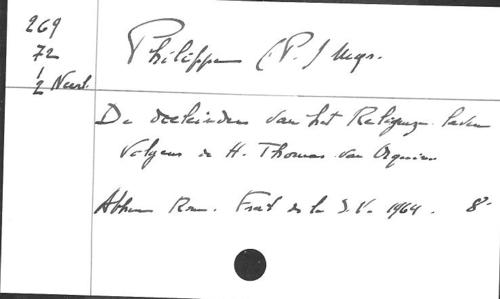 269
72
1/2 Neerl.
Philippe (P.) Mgr.
De doeleinden van het Religieuze leven
volgens de H. Thomas van Aquin
Rom. Frat de la S.V. 1964. 8°